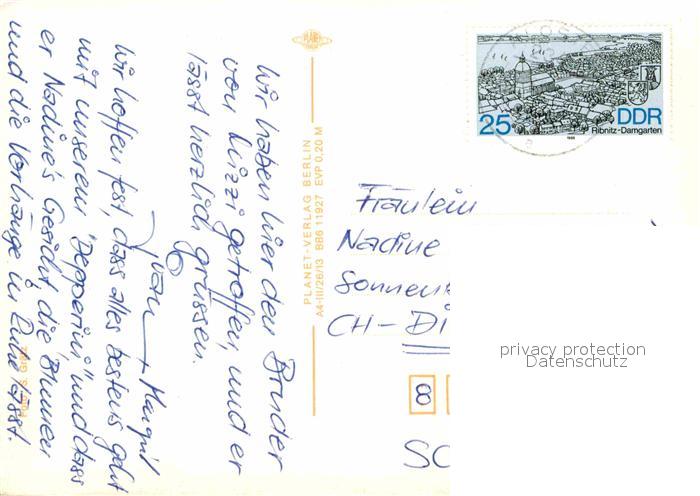 Wir haben hier den Bruder
von Mizzi getroffen, und er
lässt herzlich grüssen.
Ivan + Margrit
Wir hoffen fest, dass alles bestens geht
mit unserem "Depperin" und dass
er Nadine's Gesicht, die Blumen
und die Vorhänge in Ruhe lässt.
PLANET-VERLAG BERLIN
A4-III/26/13 BB6 11927 EVP 0,20 M
25 DDR
Ribnitz-Damgarten
Fräulein
Nadine
Sonnen
CH-Di
8
SC
privacy protection
Datenschutz